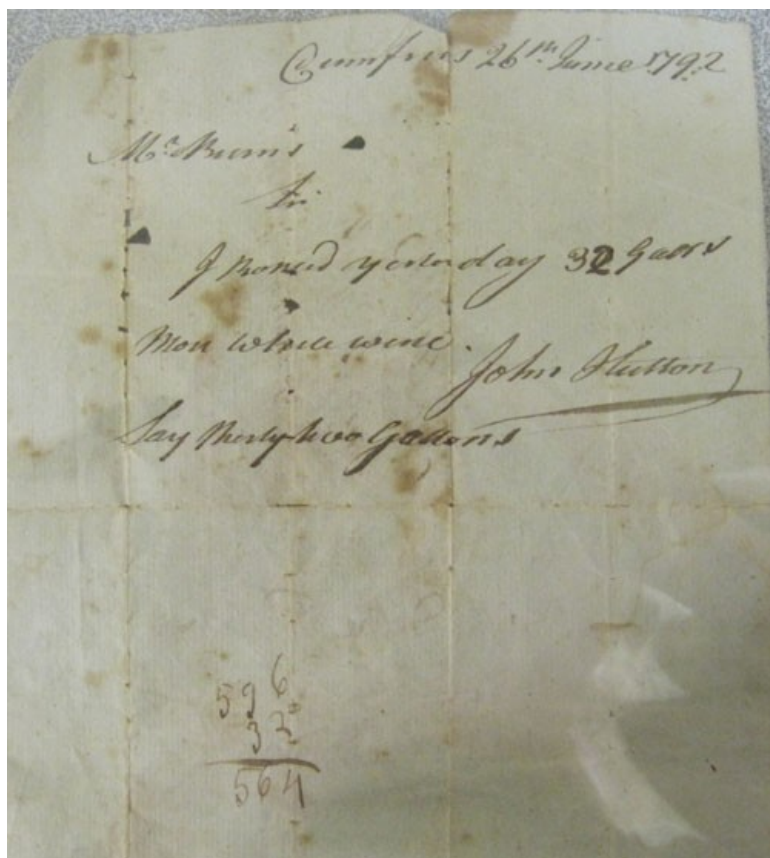 Dumfries 26th June 1792
Mr Burns
Sir
I Roused yesterday 32 Gallons
More white wine.
John Hutton
Say Thirty two Gallons
596
32
564